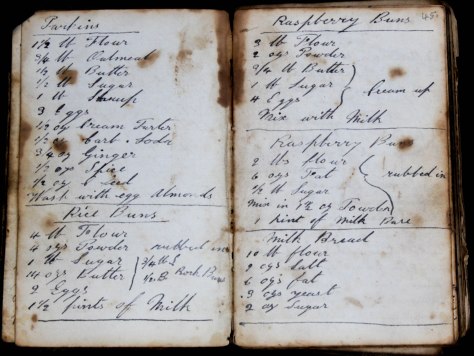 Parkins
1 1/2 lb Flour
3/4 lb Oatmeal
1/2 lb Butter
1/2 lb Sugar
1 lb
3 Eggs
1/2 oz Cream Tarter
Carb. Soda
3/4 oz Ginger
1/2 ozs Spice
1/2 oz
Wash with egg Almonds
Rice Buns
4 lb Flour
4 ozs Powder rubbed in
1 lb Sugar 3/4 lb S
14 ozs Butter 1/2 B Rock Buns
2 Eggs
1 1/2 pints of Milk
Raspberry Buns
3 lb Flour
2 ozs Powder
3/4 lb Butter
1 lb Sugar Cream up
4 Eggs
Mix with Milk
Raspberry Buns
2 lbs flour
6 ozs Fat rubbed in
1/2 lb Sugar
oz Powder
1 pint of Milk Bare
Milk Bread
10 lb flour
2 ozs Salt
6 ozs fat
3 ozs yeast
2 oz Sugar